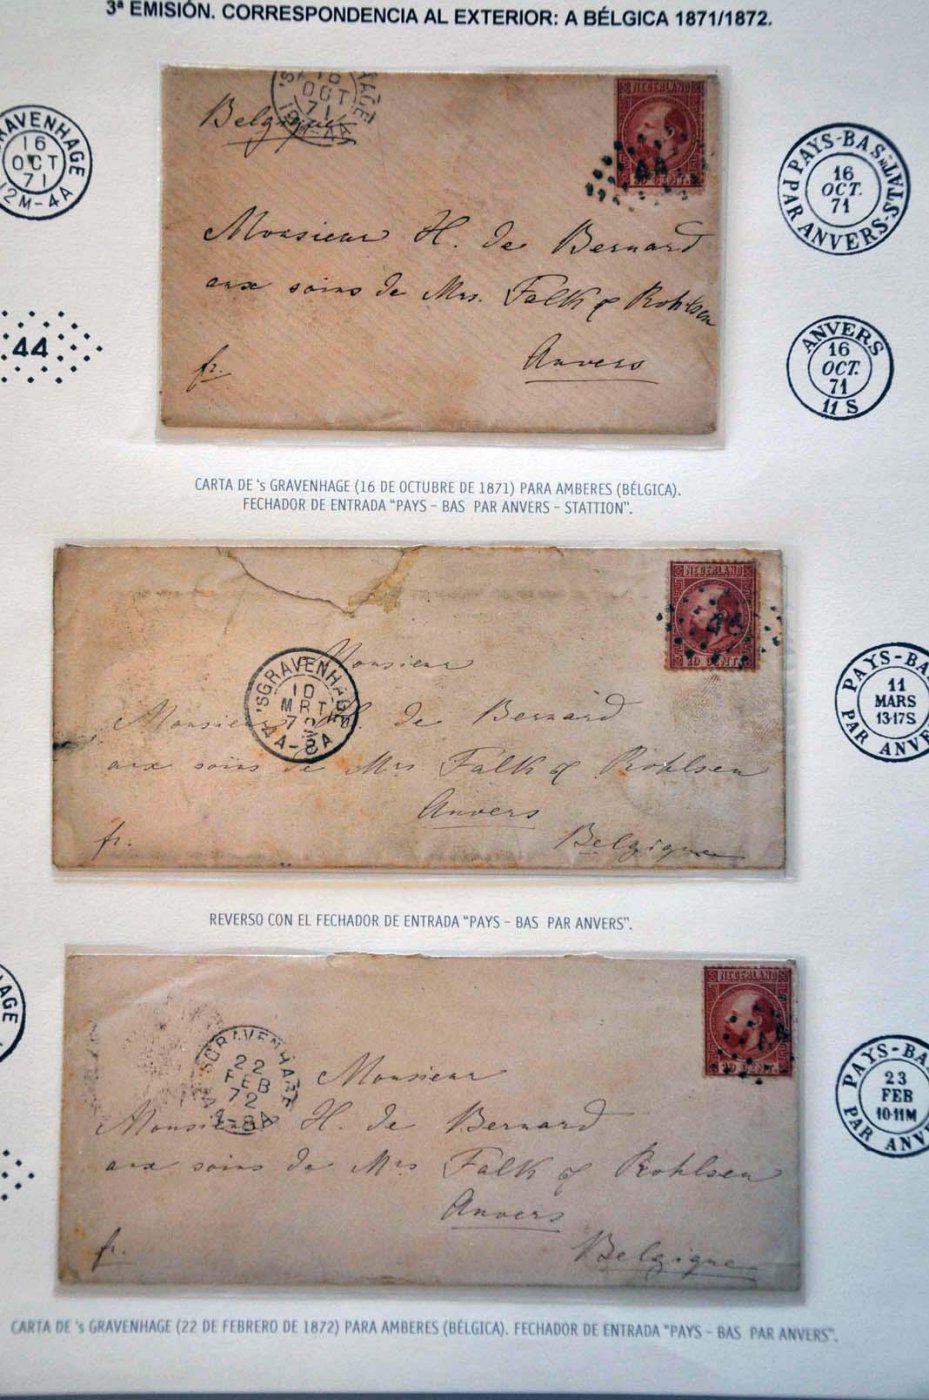 3ª EMISIÓN. CORRESPONDENCIA AL EXTERIOR: A BÉLGICA 1871/1872.
GRAVENHAGE
16
OCT
71
12M-4A
'S
16
OCT
71
HAGE
Belgique
NEDERLAND
44
10 CENT
PAYS-BAS
STAT.
PAR ANVERS
16
OCT.
71
Monsieur H. de Bernard
aux soins de Mrs. Falk & Rohlsen
Anvers
fr.
44
ANVERS
16
OCT.
71
11 S
CARTA DE 's GRAVENHAGE (16 DE OCTUBRE DE 1871) PARA AMBERES (BÉLGICA).
FECHADOR DE ENTRADA "PAYS - BAS PAR ANVERS - STATTION".
NEDERLAND
44
10 CENT
'SGRAVENHAGE
10
MRT
72
4A-8A
Monsieur
Monsieur H. de Bernard
aux soins de Mrs Falk & Rohlsen
Anvers
fr.
Belgique
PAYS-BA
11
MARS
13-17S
PAR ANVE
REVERSO CON EL FECHADOR DE ENTRADA "PAYS - BAS PAR ANVERS".
NEDERLAND
10 CENT
HAGE
'SGRAVENHAGE
22
FEB
72
4-8A
Monsieur
Monsieur H. de Bernard
aux soins de Mrs Falk & Rohlsen
Anvers
fr.
Belgique
PAYS-BA
23
FEB
10-11M
PAR ANVE
CARTA DE 's GRAVENHAGE (22 DE FEBRERO DE 1872) PARA AMBERES (BÉLGICA). FECHADOR DE ENTRADA "PAYS - BAS PAR ANVERS".